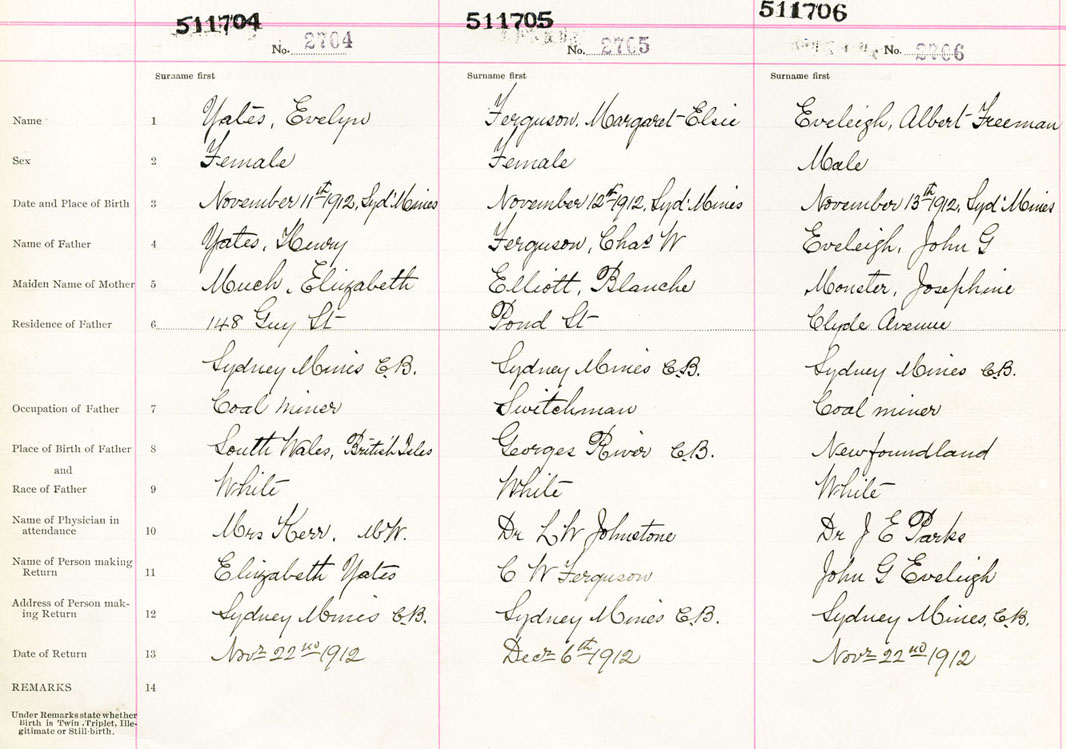 511704 511705 511706
No. 2704 No. 2705 No. 2706
Surname first Surname first Surname first
Name 1 Yates, Evelyn Ferguson, Margaret Elsie Eveleigh, Albert Freeman
Sex 2 Female Female Male
Date and Place of Birth 3 November 11th 1912, Syd. Mines November 12th 1912, Syd. Mines November 13th 1912, Syd. Mines
Name of Father 4 Yates, Henry Ferguson, Chas W Eveleigh, John G
Maiden Name of Mother 5 Much, Elizabeth Elliott, Blanche Monster, Josephine
Residence of Father 6 148 Guy St Pond St Clyde Avenue
Sydney Mines C.B. Sydney Mines C.B. Sydney Mines C.B.
Occupation of Father 7 Coal miner Switchman Coal miner
Place of Birth of Father 8 South Wales, British Isles Georges River C.B. Newfoundland
and
Race of Father 9 White White White
Name of Physician in
attendance 10 Mrs Kerr. M.W. Dr L W Johnstone Dr J E Parks
Name of Person making
Return 11 Elizabeth Yates C W Ferguson John G Eveleigh
Address of Person mak-
ing Return 12 Sydney Mines C.B. Sydney Mines C.B. Sydney Mines, C.B.
Date of Return 13 Novr 22nd 1912 Decr 6th 1912 Novr 22nd 1912
REMARKS 14
Under Remarks state whether
Birth is Twin, Triplet, Ille-
gitimate or Still-birth.